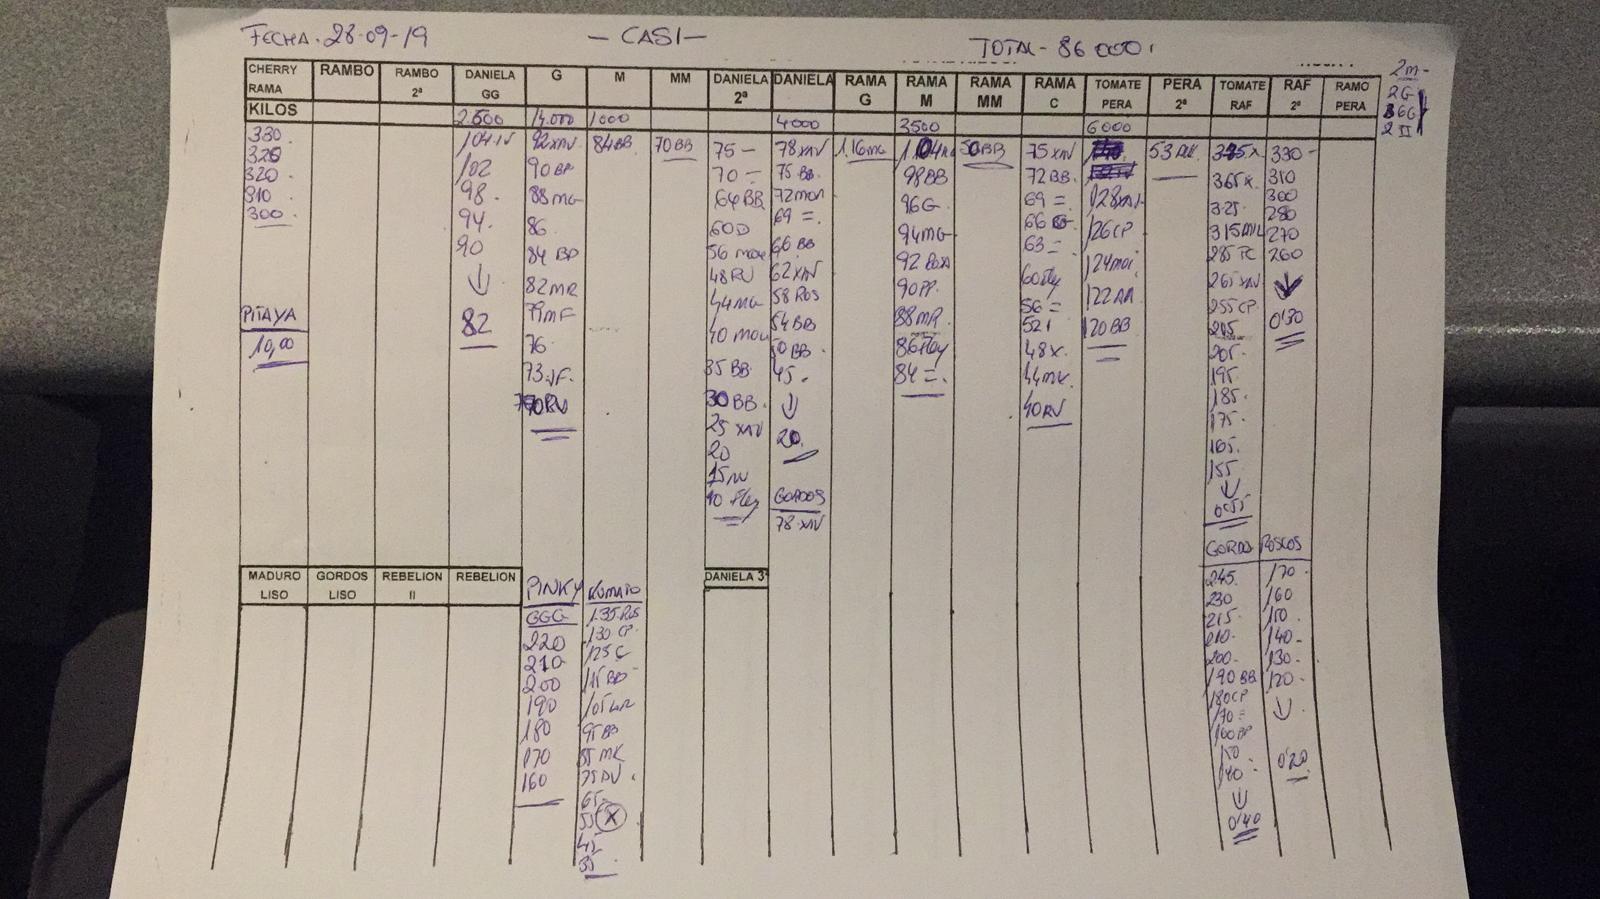 FECHA. 28-09-19 - CASI - TOTAL - 86000
CHERRY RAMA
RAMBO
RAMBO 2ª
DANIELA GG
G
M
MM
DANIELA 2ª
DANIELA
RAMA G
RAMA M
RAMA MM
RAMA C
TOMATE PERA
PERA 2ª
TOMATE RAF
RAF 2ª
RAMO PERA
2m-
2G
2 II
KILOS
2.500
14.000
1000
4000
3500
6000
330
320
320
310
300
PITAYA
10,00
102
98
94
90
↓
82
92XAV
90BP
88MG
86
84 BP
82MR
79MF
76
73.JF.
70RV
84BB
70BB
75 -
70 -
64BB
60D
56 mou
48RV
44MG
40 mou
35 BB
30 BB
25 XAV
20
15
10 Fley
78XAV
75 BB
72mon
69 =
66 BB
62XAV
58 ROS
54BB
50 BB
45
↓
20
GORDOS
78 XAV
1,16MG
98BB
96G
94MG
92
90PP
88MR
86Fley
84 =
50BB
75 XAV
72 BB
69 =
66
63 =
60Fley
56 =
52
48X
44MK
40RV
128XAV
126CP
124moi
122AA
120 BB
53
365X
325
315
285 TC
265XAV
255CP
245
205
195
185
175
165
155
↓
0'55
330
310
300
280
270
260
↓
0'30
MADURO LISO
GORDOS LISO
REBELION II
REBELION
PINKY
GGG
220
210
200
190
180
170
160
KUMATO
135 ROS
130 CP
125 C
115 BB
105
95BB
85 MK
75
65
55 X
45
35
DANIELA 3ª
GORDOS
245
230
215
210
200
190 BB
180CP
170 =
160BP
150
140
↓
0'40
ROSCOS
170
160
150
140
130
120
↓
0'20